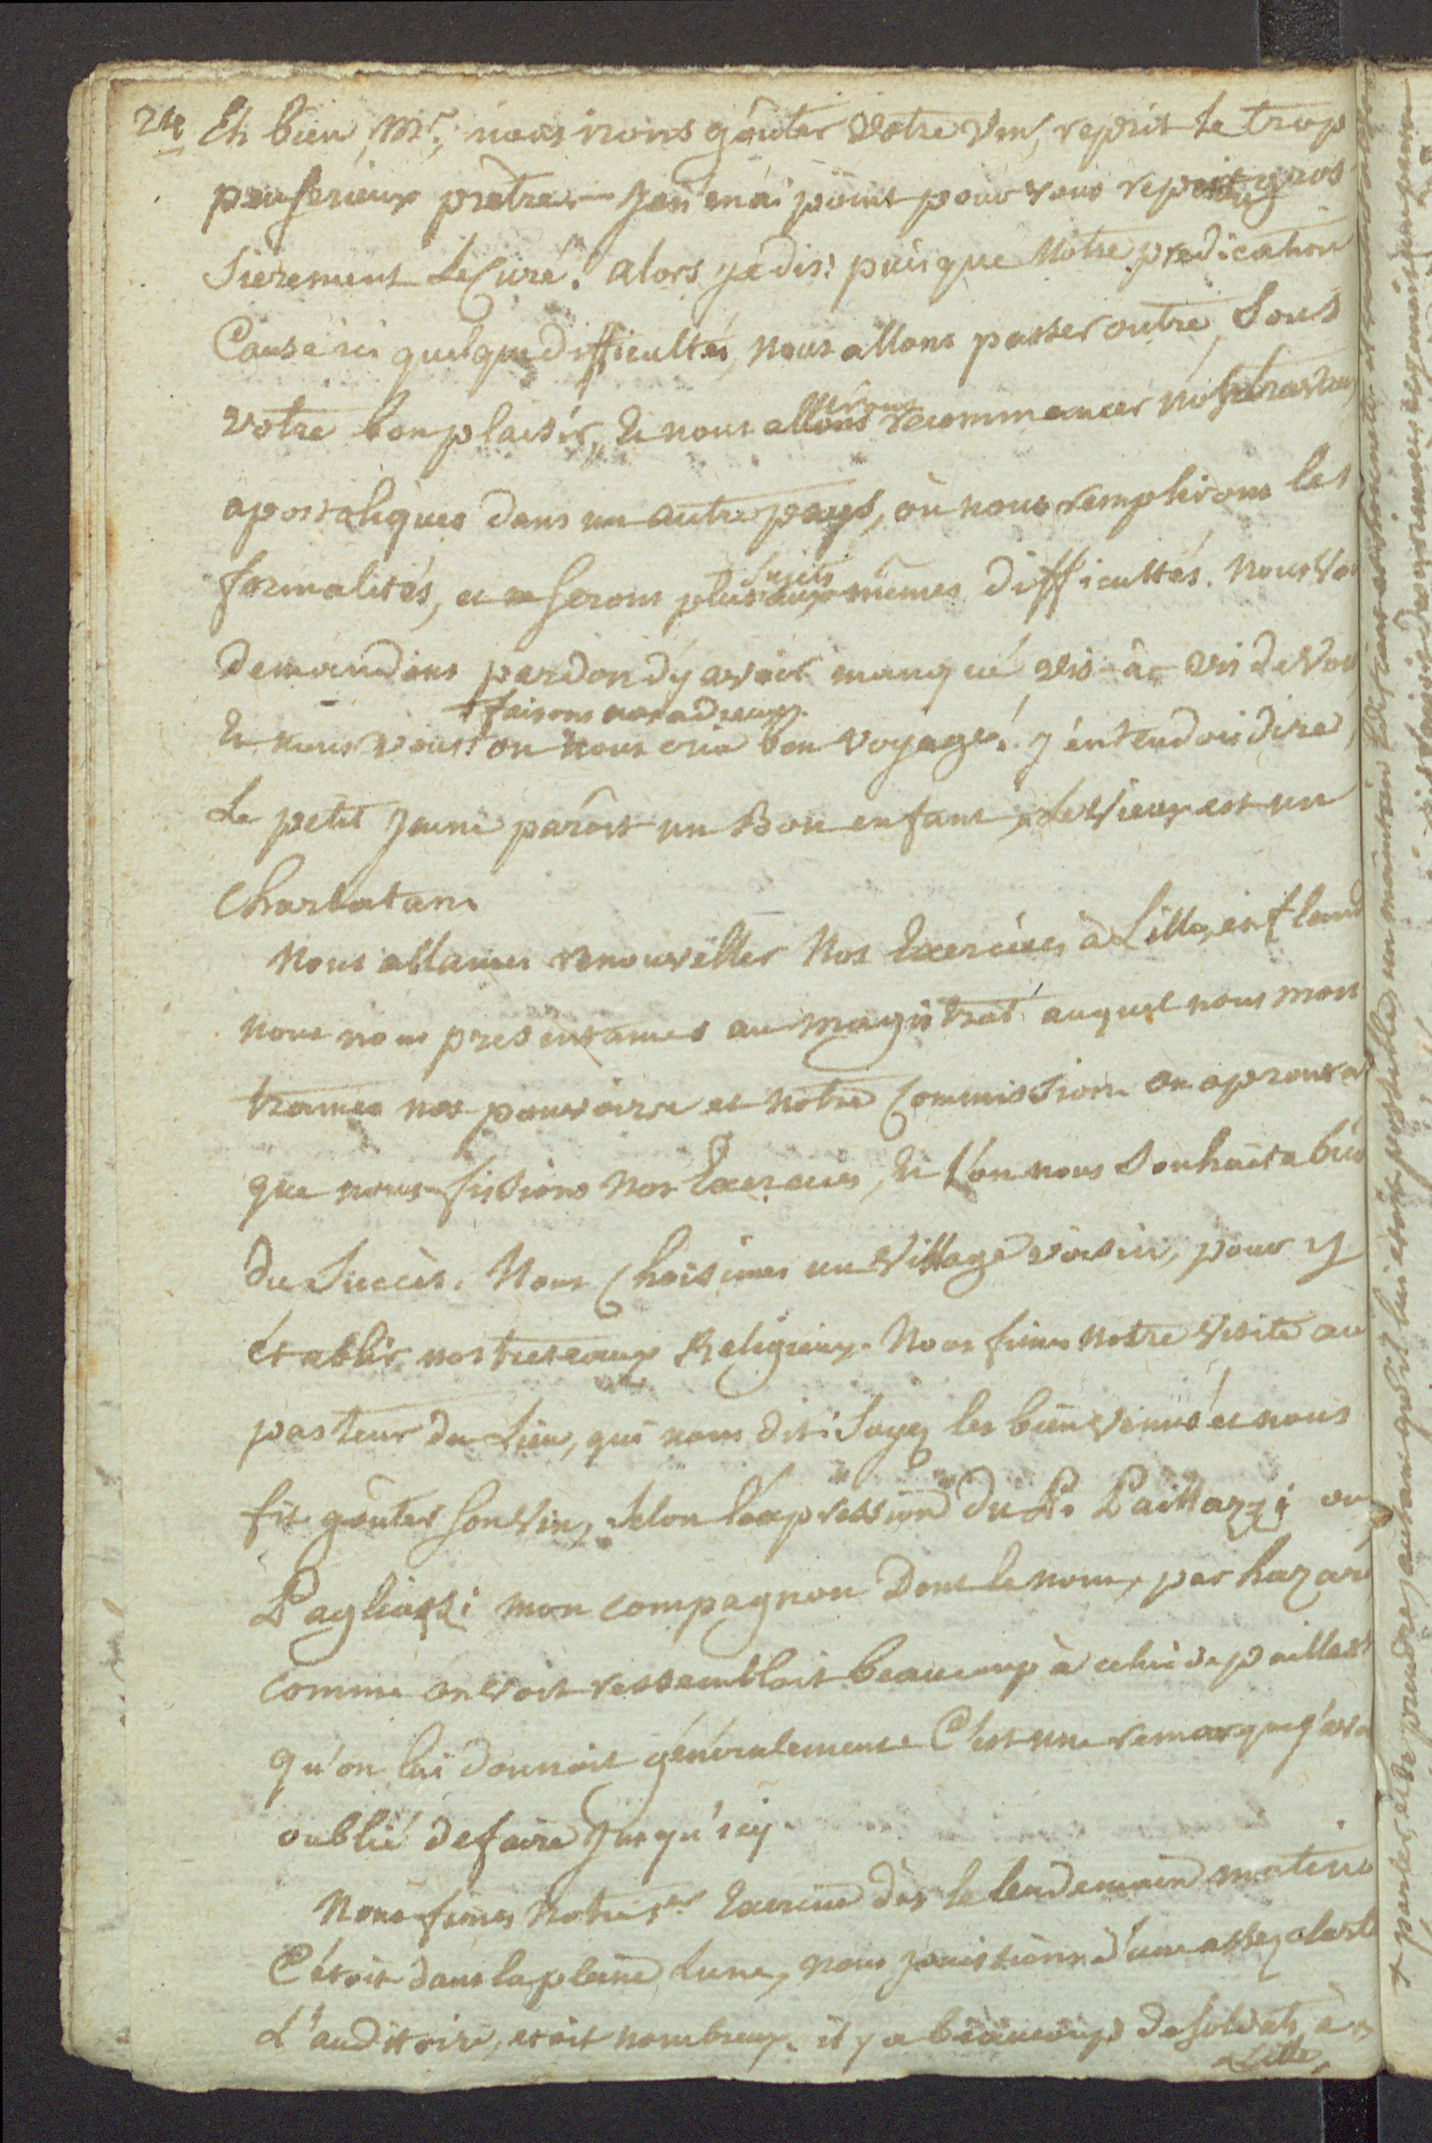 24 Eh bien, Mr, nous irons goûter votre vin, reprit le trop
peu serieux prêtre. — Je n'en ai point pour vous repartit gros
sierement le Curé. alors je dis: puisque notre predication
Cause ici quelque difficultés, nous allons passer outre, sous
votre bon plaisir, Et nous irons recommencer nos travaux
apostoliques dans un autre pays, où nous remplirons les
formalités, et serons plus sujets aux mêmes difficultés. nous vous
demandons pardon d'y avoir manqué vis-à-vis de vous
faisons nos adieux.
Et nous vous on nous cria bon voyage! j'entendois dire,
Le petit jeune parôit un Bon enfant, Le vieux est un
Charlatan.
Nous allames renouveller Nos Exercices à Lille, en fland
nous nous presentames au magistrat auquel nous mon
trames nos pouvoirs et notre Commission. on aprouva
que nous fissions nos Exercices, Et l'on nous souhaita bien
du Succès. Nous Choisimes un Village voisin, pour y
établir nos treteaux Religieux. Nous fimes notre visite au
pasteur du Lieu, qui nous dit: Soyez les bien venus et nous
fit goûter son vin, selon l'expression du P. Paillazzi ou
Pagliassi mon compagnon Dont le nom, par hazard
comme on voit ressembloit beaucoup à celui de paillasse
qu'on lui donnoit généralement. C'est une remarque j'avo
oublié de faire Jusqu'icy.
Nous fimes notre 1er Exercice dès le lendemain matin
C'étoit dans la pleine Lune, nous jouissions d'une assez clarté
L'auditoire, etoit nombreux. il y a beaucoup de soldats à
Lille,